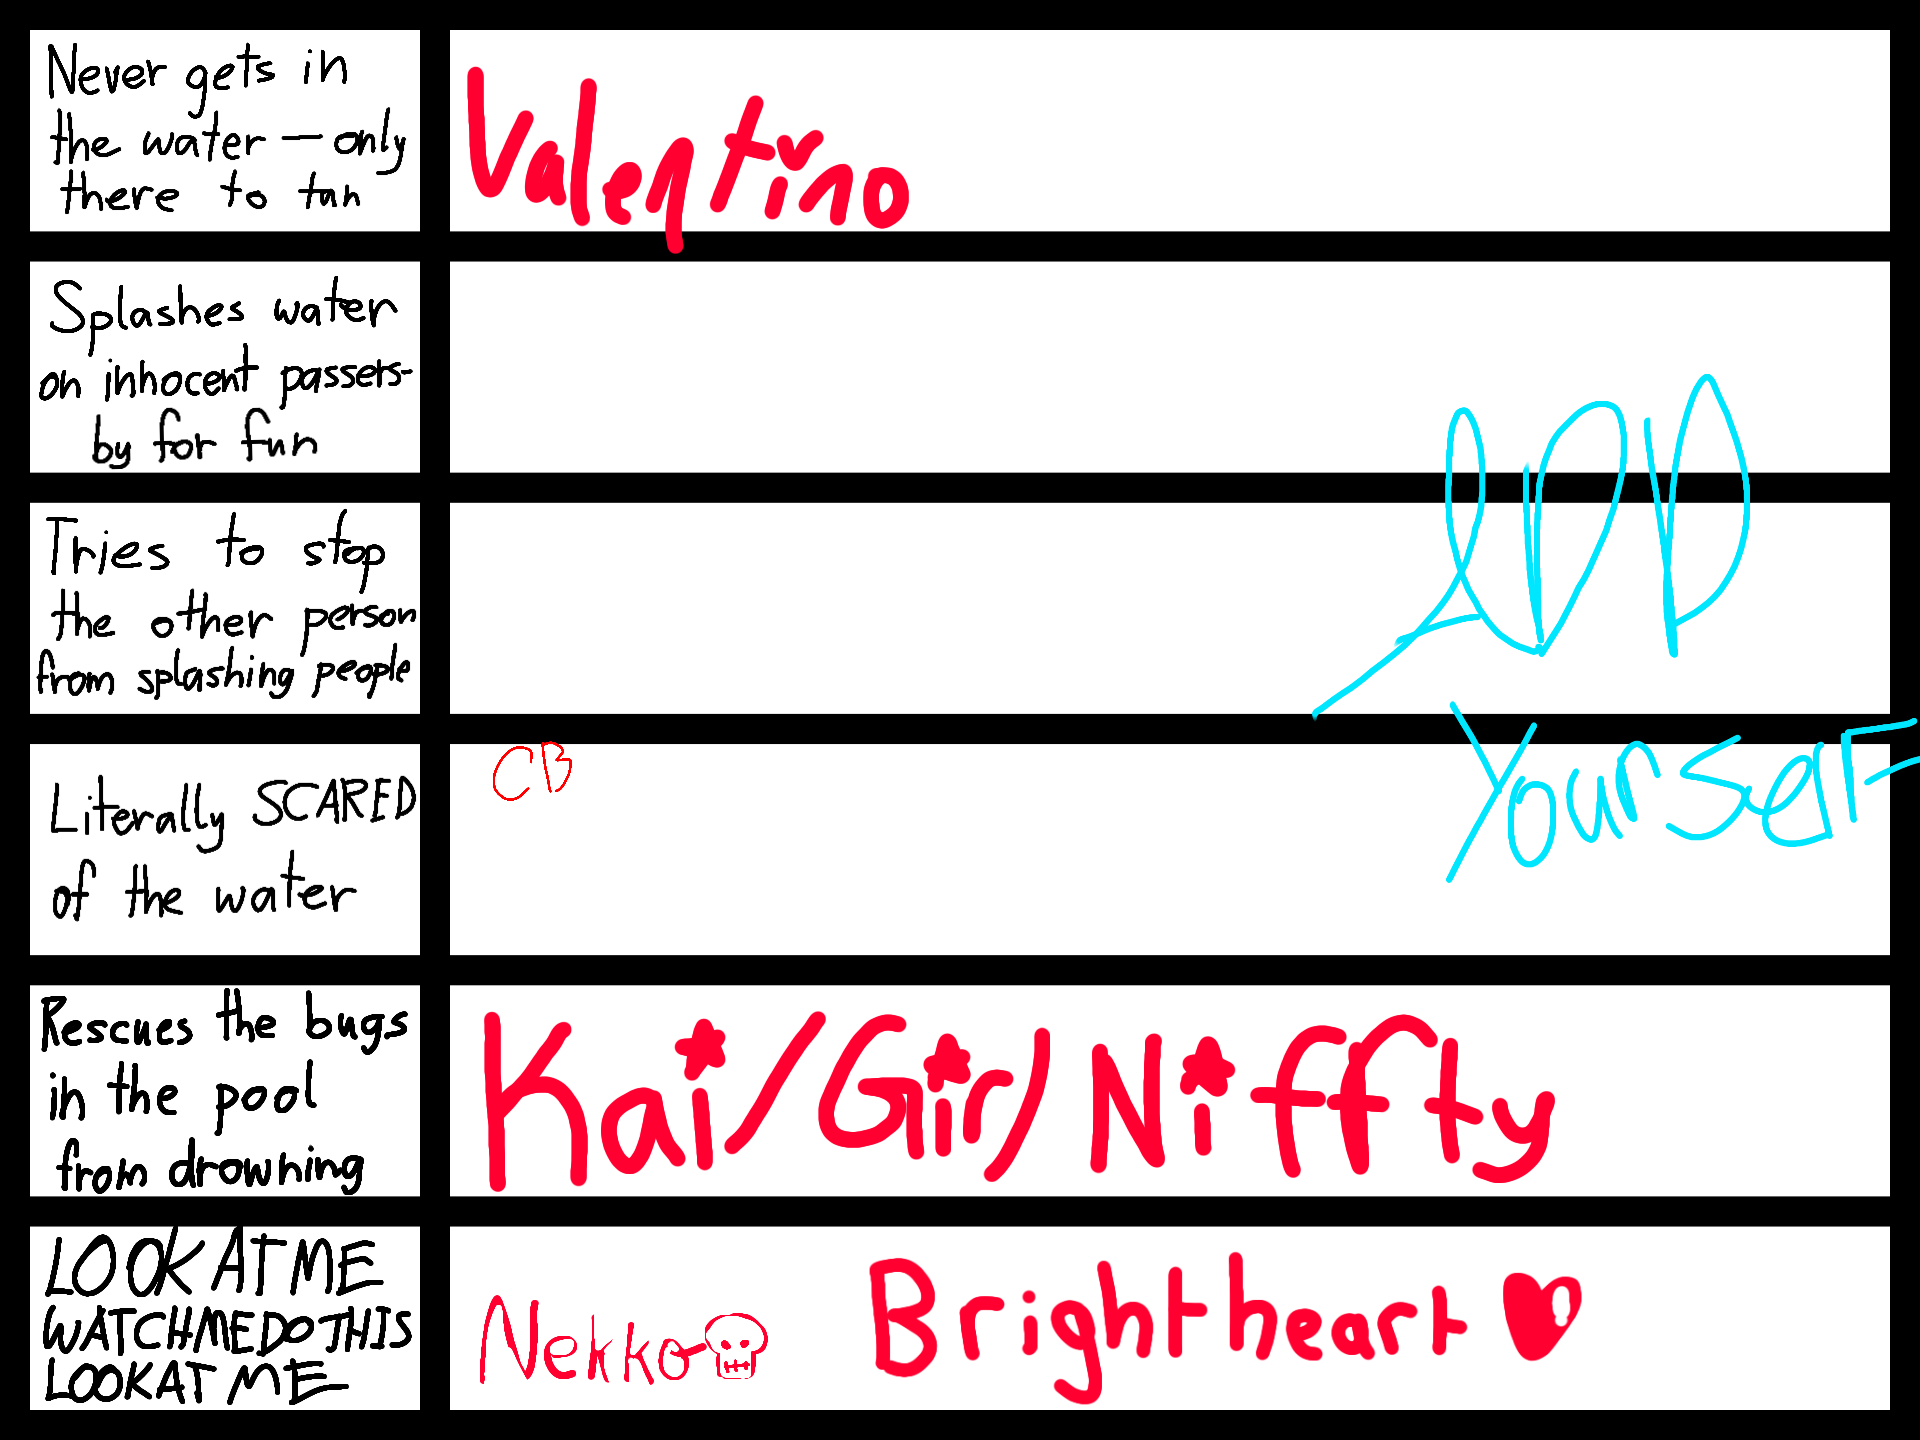 Never gets in
the water — only
there to tan
Valentino
Splashes water
on innocent passers-
by for fun
Tries to stop
the other person
from splashing people
ADD
Yourself
Literally SCARED
of the water
CB
Rescues the bugs
in the pool
from drowning
Kai/Gir/Niffty
LOOK AT ME
WATCHMEDOTHIS
LOOKAT ME
Nekko
Brightheart